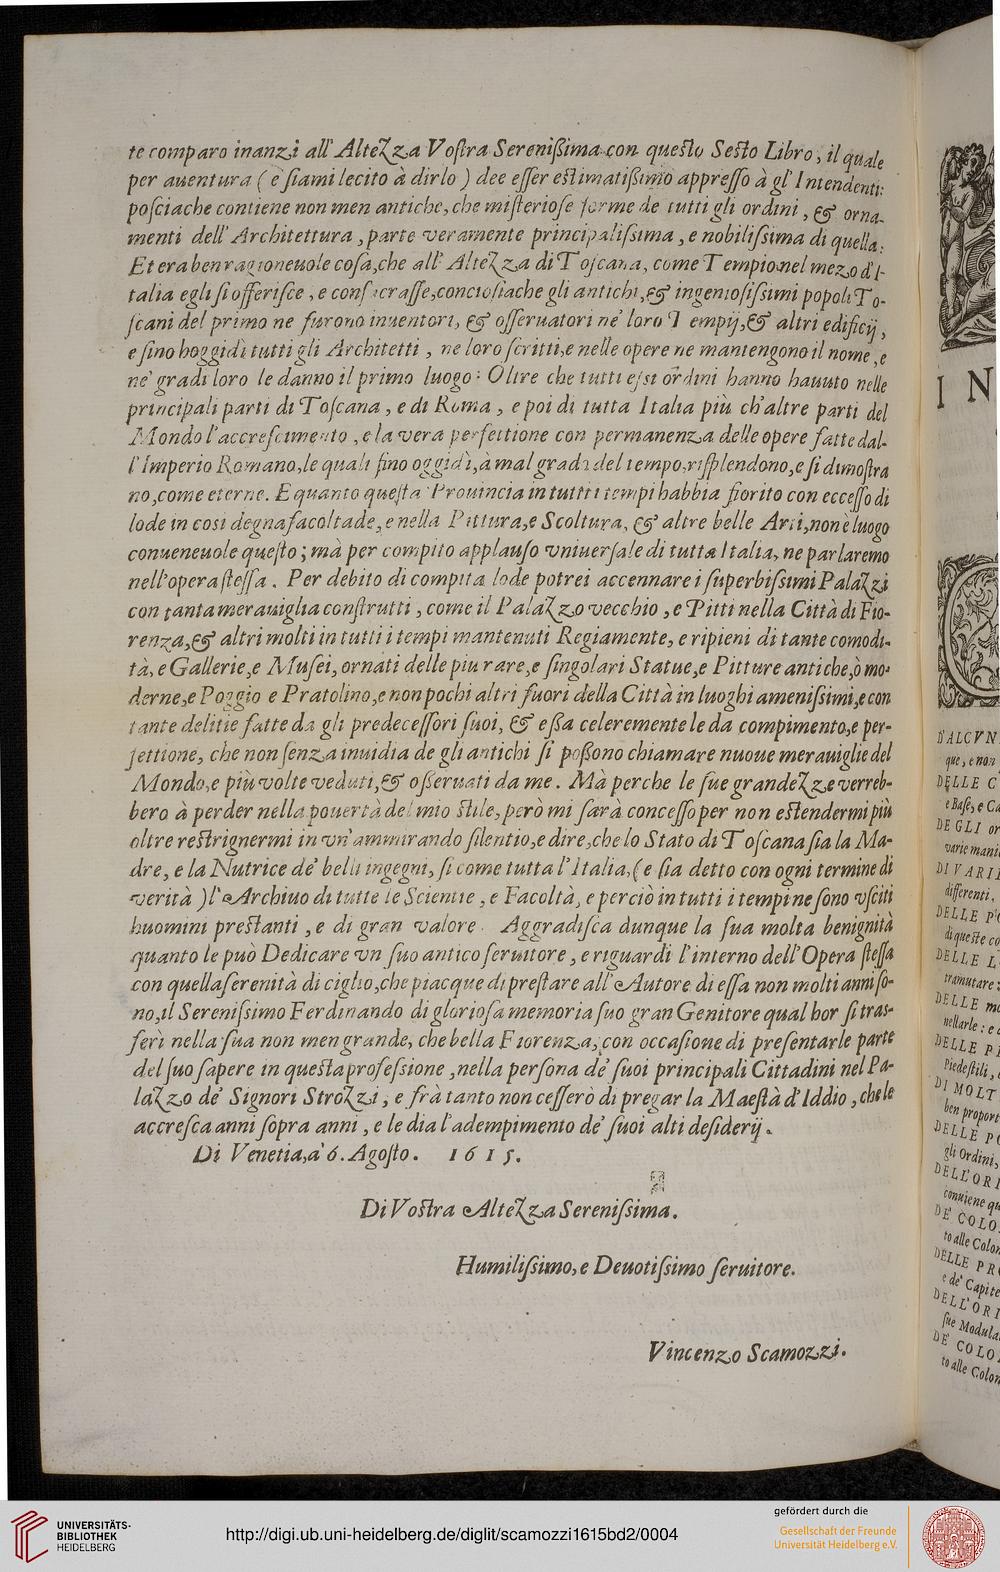 te comparo inanzi all' Altezza Vostra Serenißima con questo Sesto Libro, il quale
per auentura ( e siami lecito à dirlo ) dee esser estimatißimo appresso à gl' Intendenti:
posciache contiene non men antiche, che misteriose forme de tutti gli ordini, & orna-
menti dell' Architettura, parte veramente principalissima, e nobilissima di quella:
Et era ben ragioneuole cosa, che all' Altezza di Toscana, come Tempio nel mezo d' I-
talia egli si offerisce, e consacrasse, conciosiache gli antichi, & ingeniosissimi popoli To-
scani del primo ne furono inuentori, & osseruatori ne' loro Tempij, & altri edificij,
e sino hoggidi tutti gli Architetti, ne loro scritti, e nelle opere ne mantengono il nome, e
ne' gradi loro le danno il primo luogo: Oltre che tutti essi ordini hanno hauuto nelle
principali parti di Toscana, e di Roma, e poi di tutta Italia più ch' altre parti del
Mondo l' accrescimento, e la vera perfettione con permanenza delle opere fatte dal-
l' Imperio Romano, le quali fino oggidì, à mal grado del tempo, risplendono, e si dimostra
no, come eterne. E quanto questa Prouincia in tutti i tempi habbia fiorito con eccesso di
lode in cosi degna facoltade, e nella Pittura, e Scoltura, & altre belle Arti, non è luogo
conueneuole questo; mà per compito applauso vniuersale di tutta Italia, ne parlaremo
nell' opera stessa. Per debito di compita lode potrei accennare i superbissimi Palazzi
con tanta merauiglia construtti, come il Palazzo vecchio, e Pitti nella Città di Fio-
renza, & altri molti in tutti i tempi mantenuti Regiamente, e ripieni di tante comodi-
tà, e Gallerie, e Musei, ornati delle piu rare, e singolari Statue, e Pitture antiche, ò mo-
derne, e Poggio e Pratolino, e non pochi altri fuori della Città in luoghi amenissimi, e con
tante delitie fatte da gli predecessori suoi, & eßa celeremente le da compimento, e per-
fettione, che non senza inuidia de gli antichi si poßono chiamare nuoue merauiglie del
Mondo, e più volte veduti, & oßeruati da me. Mà perche le sue grandezze verreb-
bero à perder nella pouertà del mio stile, però mi sarà concesso per non estendermi più
oltre restrignermi in vn' ammirando silentio, e dire, che lo Stato di Toscana sia la Ma-
dre, e la Nutrice de' belli ingegni, si come tutta l' Italia, ( e sia detto con ogni termine di
verità ) l' Archiuo di tutte le Scientie, e Facoltà, e perciò in tutti i tempi ne sono vsciti
huomini prestanti, e di gran valore. Aggradisca dunque la sua molta benignità
quanto le può Dedicare vn suo antico seruitore, e riguardi l' interno dell' Opera stessa
con quella serenità di ciglio, che piacque di prestare all' Autore di essa non molti anni so-
no, il Serenissimo Ferdinando di gloriosa memoria suo gran Genitore qual hor si tras-
ferì nella sua non men grande, che bella Fiorenza, con occasione di presentarle parte
del suo sapere in questa professione, nella persona de' suoi principali Cittadini nel Pa-
lazzo de' Signori Strozzi, e frà tanto non cesserò di pregar la Maestà d' Iddio, che le
accresca anni sopra anni, e le dia l' adempimento de' suoi alti desiderij.
Di Venetia, à 6. Agosto. 1615.
Di Vostra Altezza Serenissima.
Humilissimo, e Deuotissimo seruitore.
Vincenzo Scamozzi.
I N
D' ALCVN
que, e non
DELLE C
e Base, e Ca
DEGLI or
varie mani
DI VARII
differenti.
DELLE PO
di queste co
DELLE L
tramutare
DELLE mo
nellarle: e
DELLE PI
Piedestili,
DI MOLT
ben proport
DELLE PO
gli Ordini,
DELL' ORI
conuiene qu
DE' COLO
to alle Colon
DELLE PR
e de' Capite
DELL' ORI
sue Modula
DE' COLO
to alle Colon
UNIVERSITÄTS-
BIBLIOTHEK
HEIDELBERG
http://digi.ub.uni-heidelberg.de/diglit/scamozzi1615bd2/0004
gefördert durch die
Gesellschaft der Freunde
Universität Heidelberg e.V.